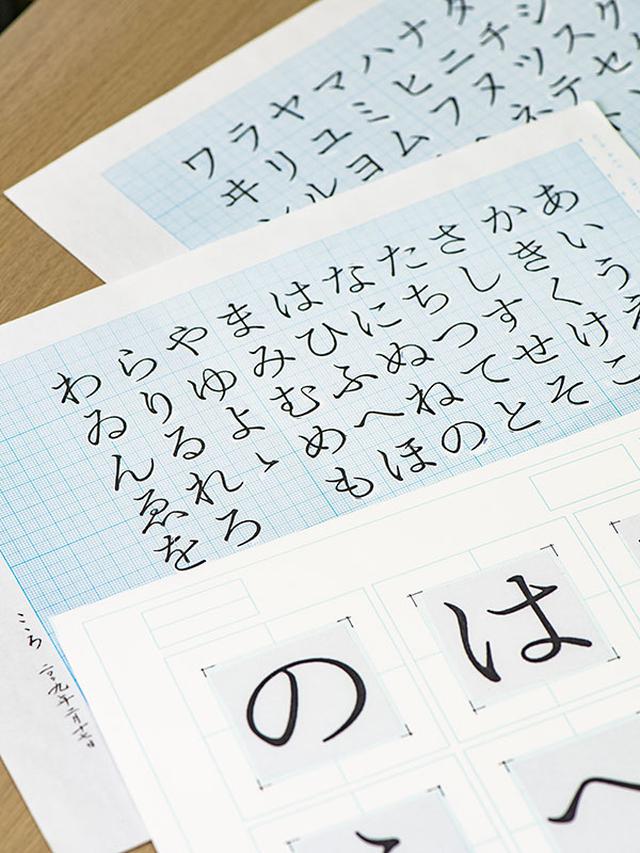 ク
シスセ
タチツテ
ナニヌネ
ハヒフ
マミム
ヤユヨ
ラリル
ワヰ
あいうえ
かきくけこ
さしすせそ
たちつてと
なにぬねの
はひふへほ
まみむめも
やゆよゝ
らりるれろ
わゐんゑを
ころ 二〇〇九年二月十七日
は
へ
の